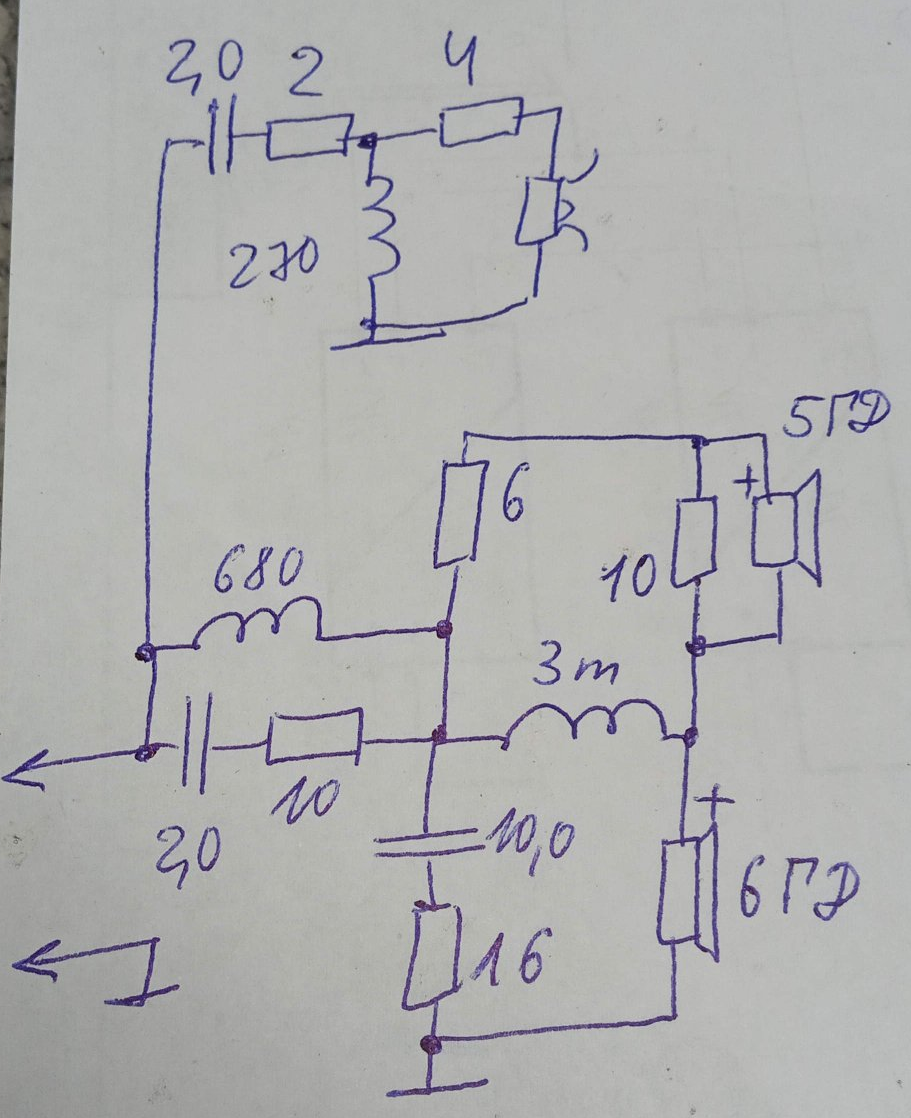 2,0 2 4
270
5ГД
+
6
10
680
3m
+
10
10,0
2,0
6ГД
16